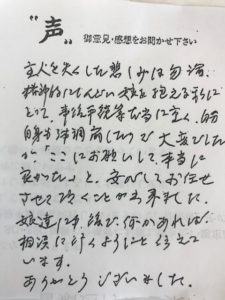 "声"
御意見・感想をお聞かせ下さい
主人を失くした悲しみは勿論、
精神的にしんどい娘を抱える私に
とって、事後手続等本当に重く、自分
自身も体調崩したりで大変でした
が「ここにお願いして本当に
良かった」と、安心してお任せ
させて頂くことが出来ました。
娘達にも、後々何かあれば、
相談に行くようにと伝えて
います。
ありがとうございました。